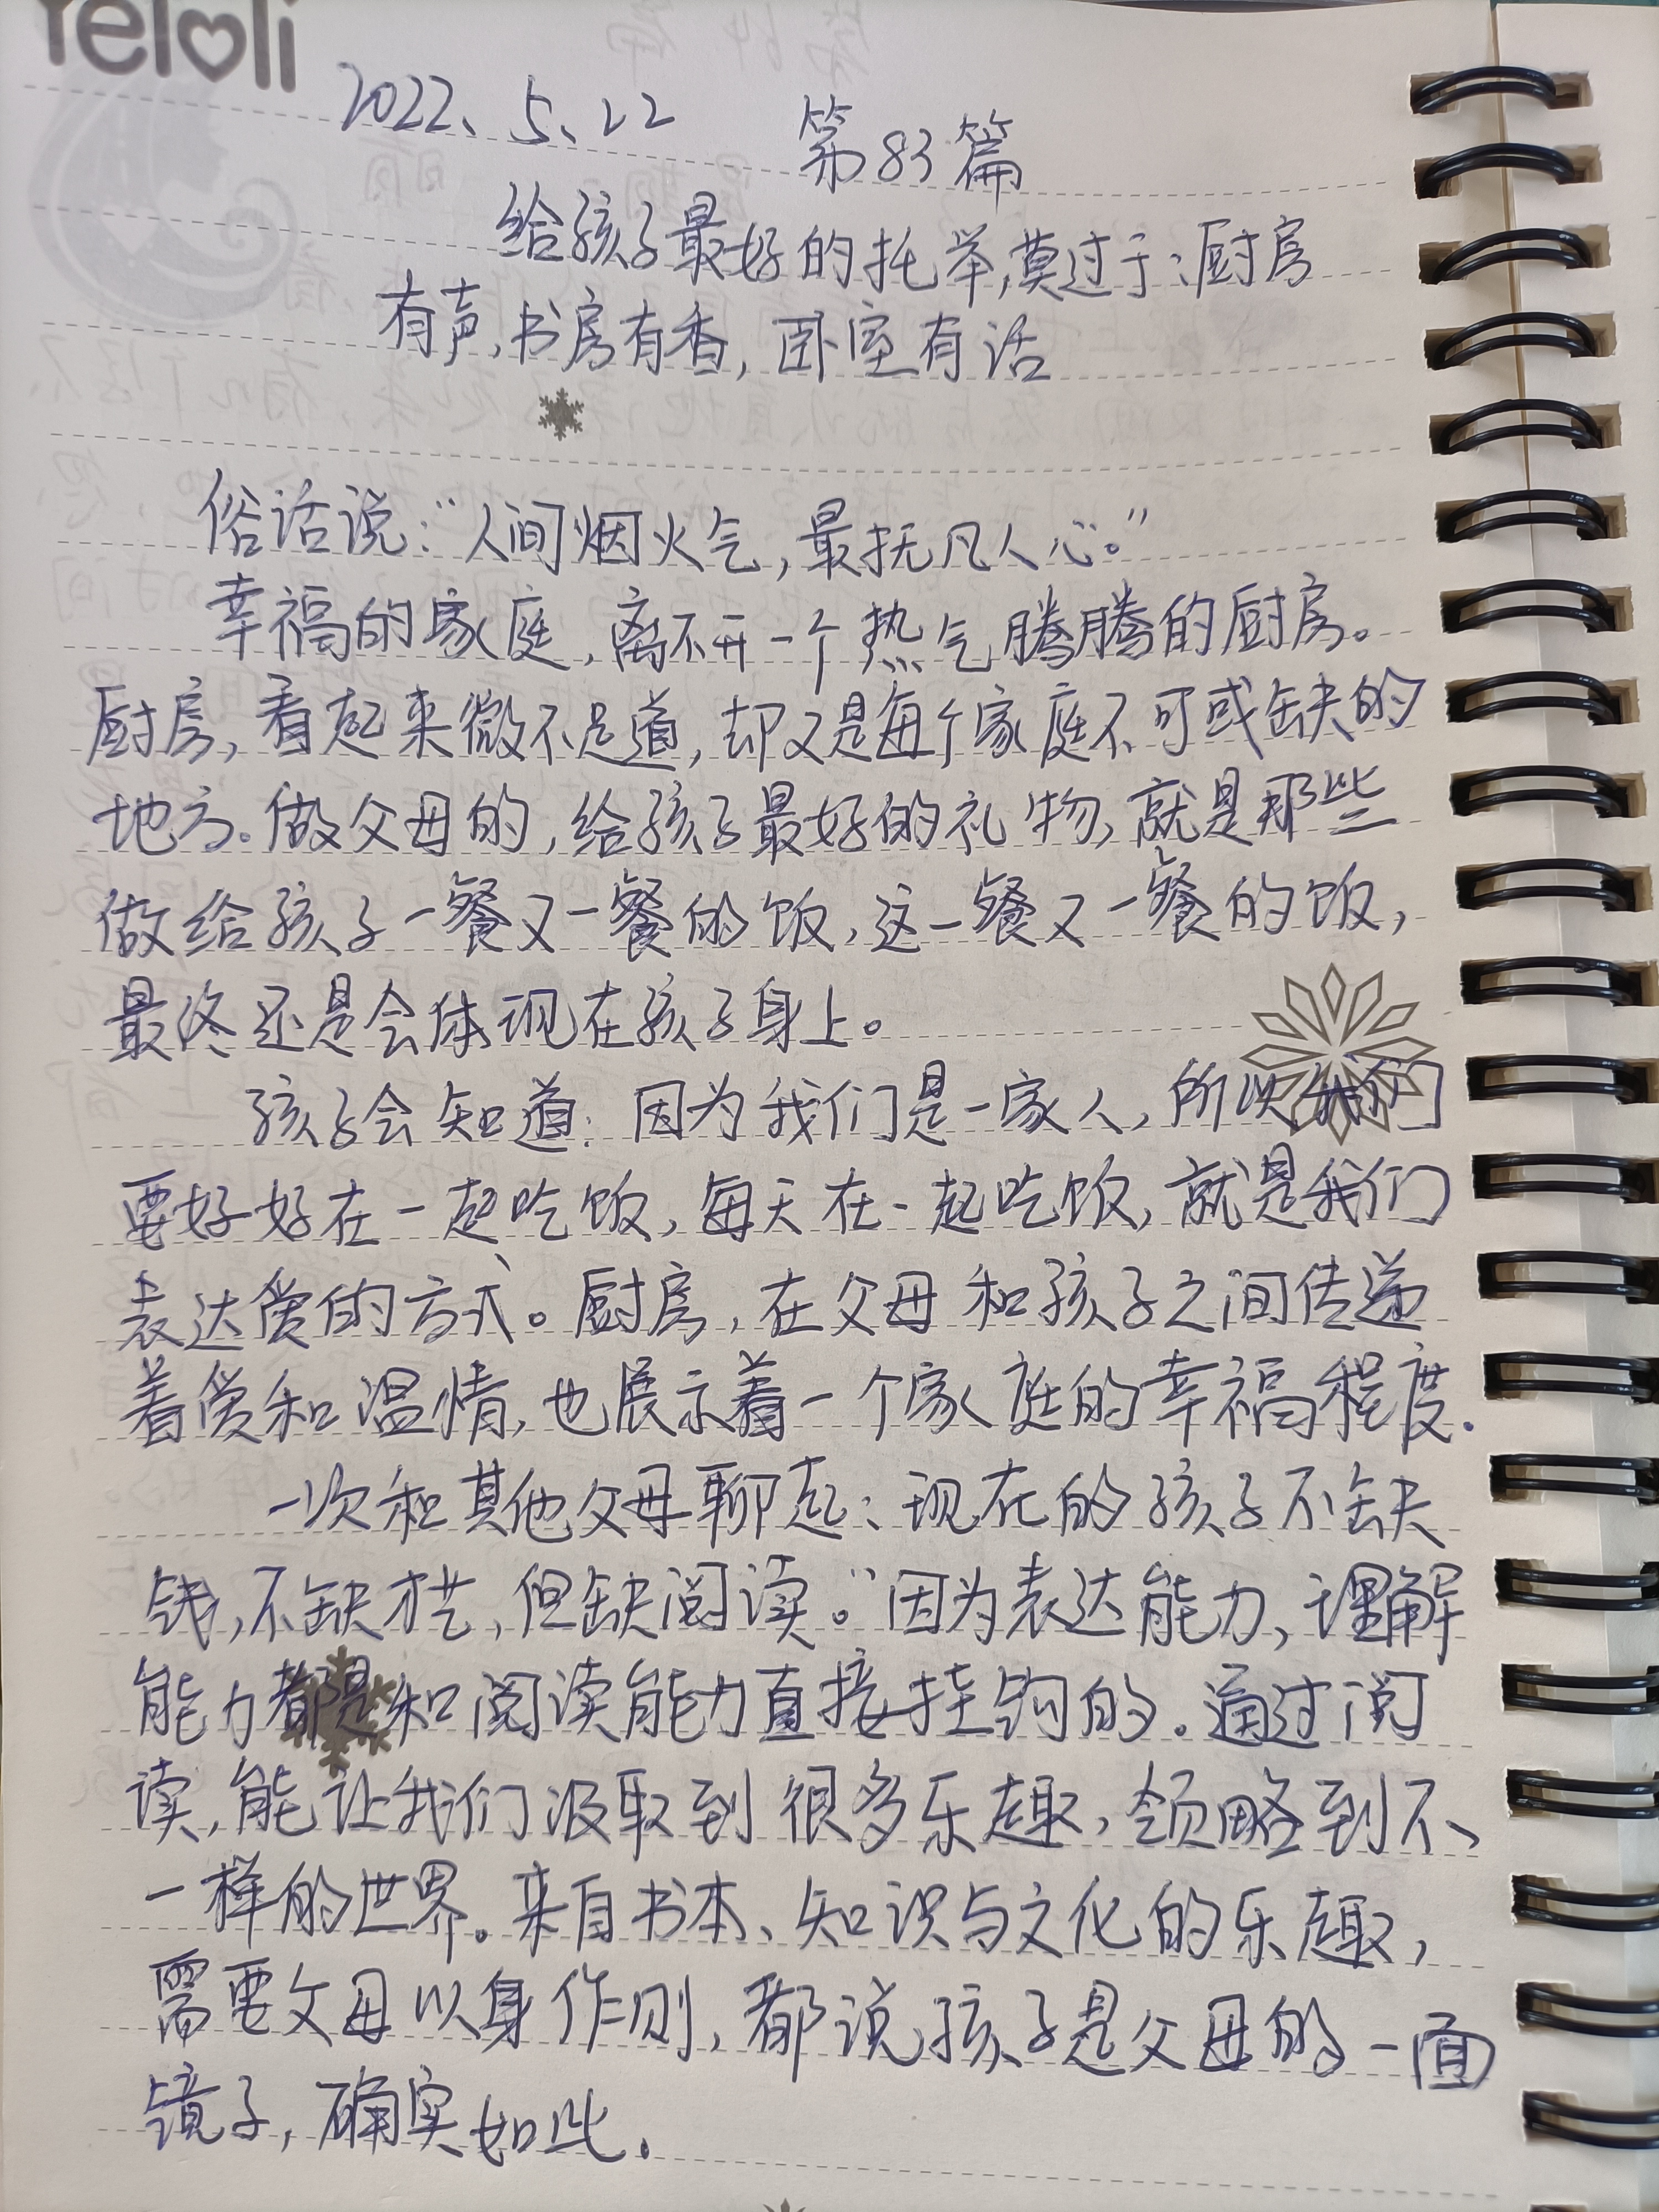 Yeloli
2022、5、22 第83篇
给孩子最好的托举,莫过于:厨房
有声,书房有香,卧室有话
俗话说:“人间烟火气,最抚凡人心。”
幸福的家庭,离不开一个热气腾腾的厨房。
厨房,看起来微不足道,却又是每个家庭不可或缺的
地方。做父母的,给孩子最好的礼物,就是那些
做给孩子一餐又一餐的饭,这一餐又一餐的饭,
最终还是会体现在孩子身上。
孩子会知道:因为我们是一家人,所以我们
要好好在一起吃饭,每天在一起吃饭,就是我们
表达爱的方式。厨房,在父母和孩子之间传递
着爱和温情,也展示着一个家庭的幸福程度.
一次和其他父母聊起:现在的孩子不缺
钱,不缺才艺,但缺阅读。”因为表达能力、理解
能力都是和阅读能力直接挂钩的.通过阅
读,能让我们汲取到很多乐趣,领略到不
一样的世界。来自书本、知识与文化的乐趣,
需要父母以身作则,都说孩子是父母的一面
镜子,确实如此.